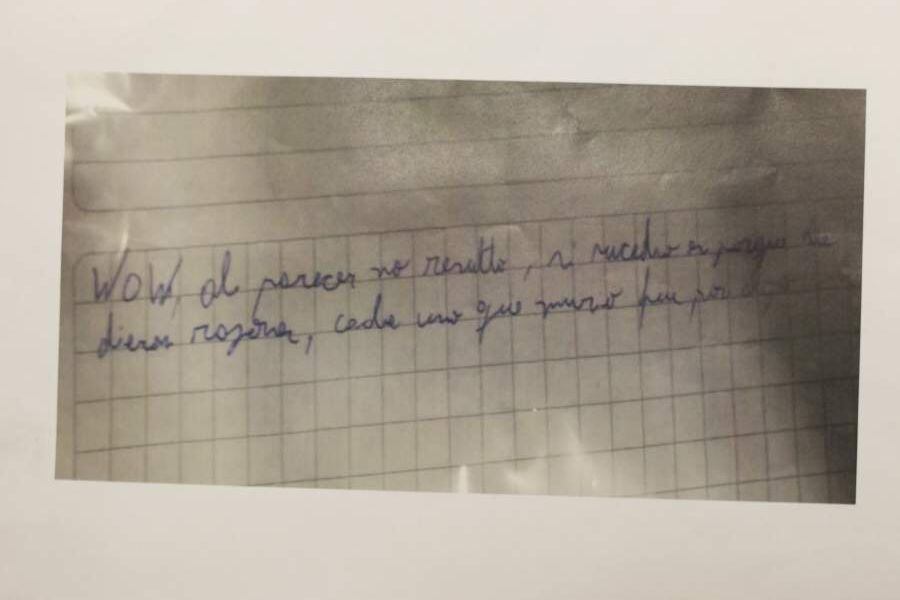 WOW, al parecer no resulto, si sucedio es porque me
dieron razones, cada uno que murio fue por